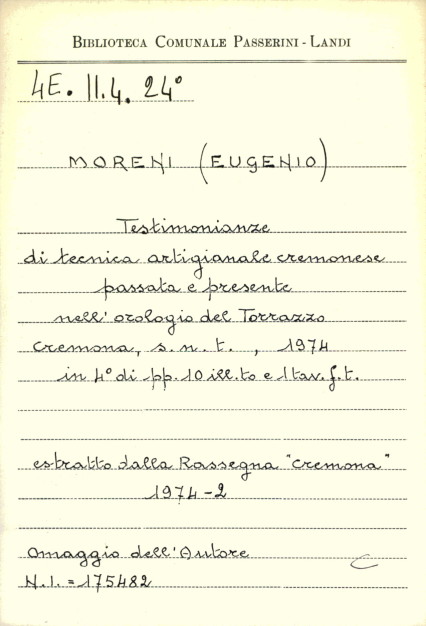 BIBLIOTECA COMUNALE PASSERINI - LANDI
4E. II.4. 24°
MORENI (EUGENIO)
Testimonianze
di tecnica artigianale cremonese
passata e presente
nell'orologio del Torrazzo
Cremona, s. n. t. , 1974
in 4° di pp. 10 ill.to e 1 tav. f. t.
estratto dalla Rassegna "Cremona"
1974-2
Omaggio dell'Autore
N.I. = 175482